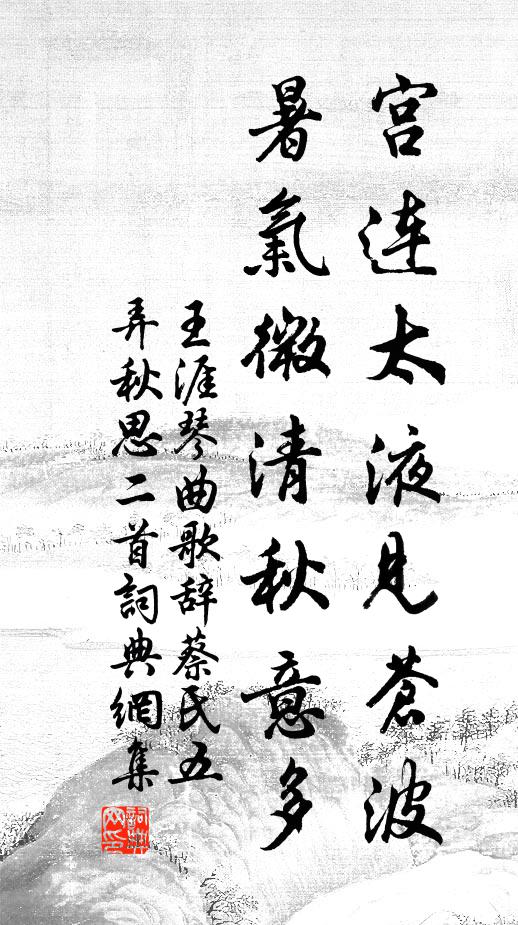 宫连太液见苍波
暑氣微清秋意多
王涯琴曲歌辞蔡氏五
弄秋思二首詞典網集